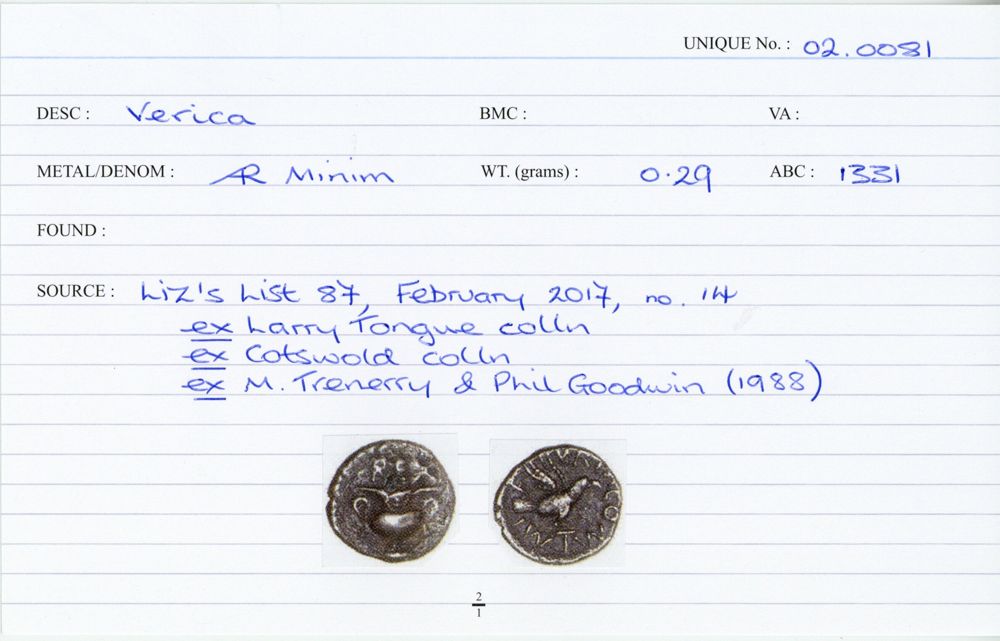 UNIQUE No. : 02.0081
DESC : Verica BMC : VA :
METAL/DENOM : AR Minim WT. (grams) : 0.29 ABC : 1331
FOUND :
SOURCE : Liz's List 87, February 2017, no. 14
ex Larry Tongue colln
ex Cotswold colln
ex M. Trenerry & Phil Goodwin (1988)
REX
2
1